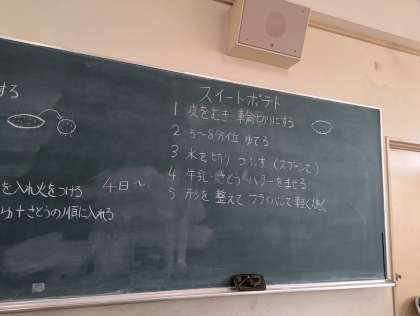 する
を入れ火をつける 4日~
ゆ+さとうの順に入れる
スイートポテト
1 皮をむき 輪切りにする
2 5~8分位 ゆでる
3 水を切り つぶす(スプーンで)
4 牛乳・さとう・バターをまぜる
5 形を 整えて フライパンで軽く焼く